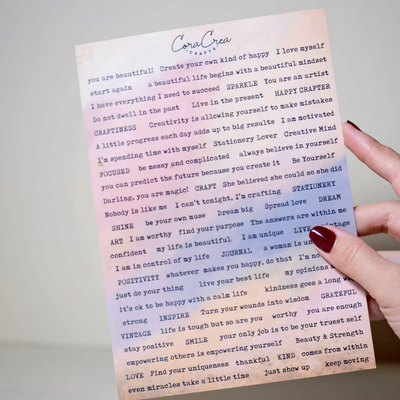 CoraCrea
CRAFTS
you are beautiful! Create your own kind of happy I love myself
start again a beautiful life begins with a beautiful mindset
I have everything I need to succeed SPARKLE You are an artist
Do not dwell in the past Live in the present HAPPY CRAFTER
CRAFTINESS Creativity is allowing yourself to make mistakes
A little progress each day adds up to big results I am motivated
I'm spending time with myself Stationery Lover Creative Mind
FOCUSED be messy and complicated always believe in yourself
you can predict the future because you create it Be Yourself
Darling, you are magic! CRAFT She believed she could so she did
Nobody is like me I can't tonight, I'm crafting STATIONERY
SHINE be your own muse Dream big Spread love DREAM
ART I am worthy find your purpose The answers are within me
confident my life is beautiful I am unique LIVE
I am in control of my life JOURNAL a woman is
POSITIVITY whatever makes you happy, do that I'm
just do your thing live your best life my opinions
it's ok to be happy with a calm life kindness goes a long
strong INSPIRE Turn your wounds into wisdom GRATEFUL
VINTAGE life is tough but so are you worthy you are enough
stay positive SMILE your only job is to be your truest self
empowering others is empowering yourself Beauty & Strength
LOVE Find your uniqueness thankful KIND comes from within
even miracles take a little time just show up keep moving